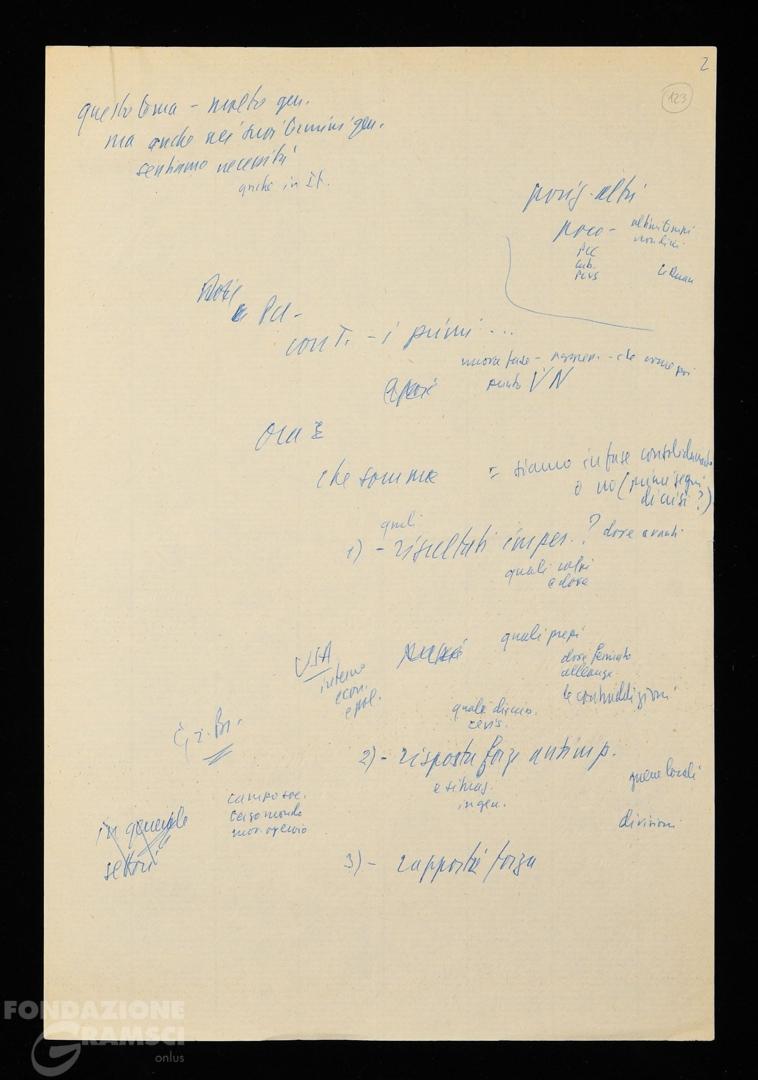 2
123
questo tema - molto gen.
ma anche nei suoi termini gen.
sentiamo necessità
anche in It.
posiz. altri
poco -
ultimi tempi
PCC
cub.
PCUS
PCI -
con T. - i primi ...
nuova fase -
che
punto VN
Ora
che somma = siamo in fase consolidamento
o no (primi segni
di crisi?)
quali
1) - risultati imper. ? dove avanti
quali colpi
e dove
USA
interno
econ.
e pol.
quali prezzi
dove
alleanze
le contraddizioni
quale discus.
Gr. Br.
2) - risposta forze antimp.
e situaz.
in gen.
guerre locali
divisioni
campo soc.
terzo mondo
mov. operaio
in generale
settori
3) - rapporti forza
FONDAZIONE
GRAMSCI
onlus